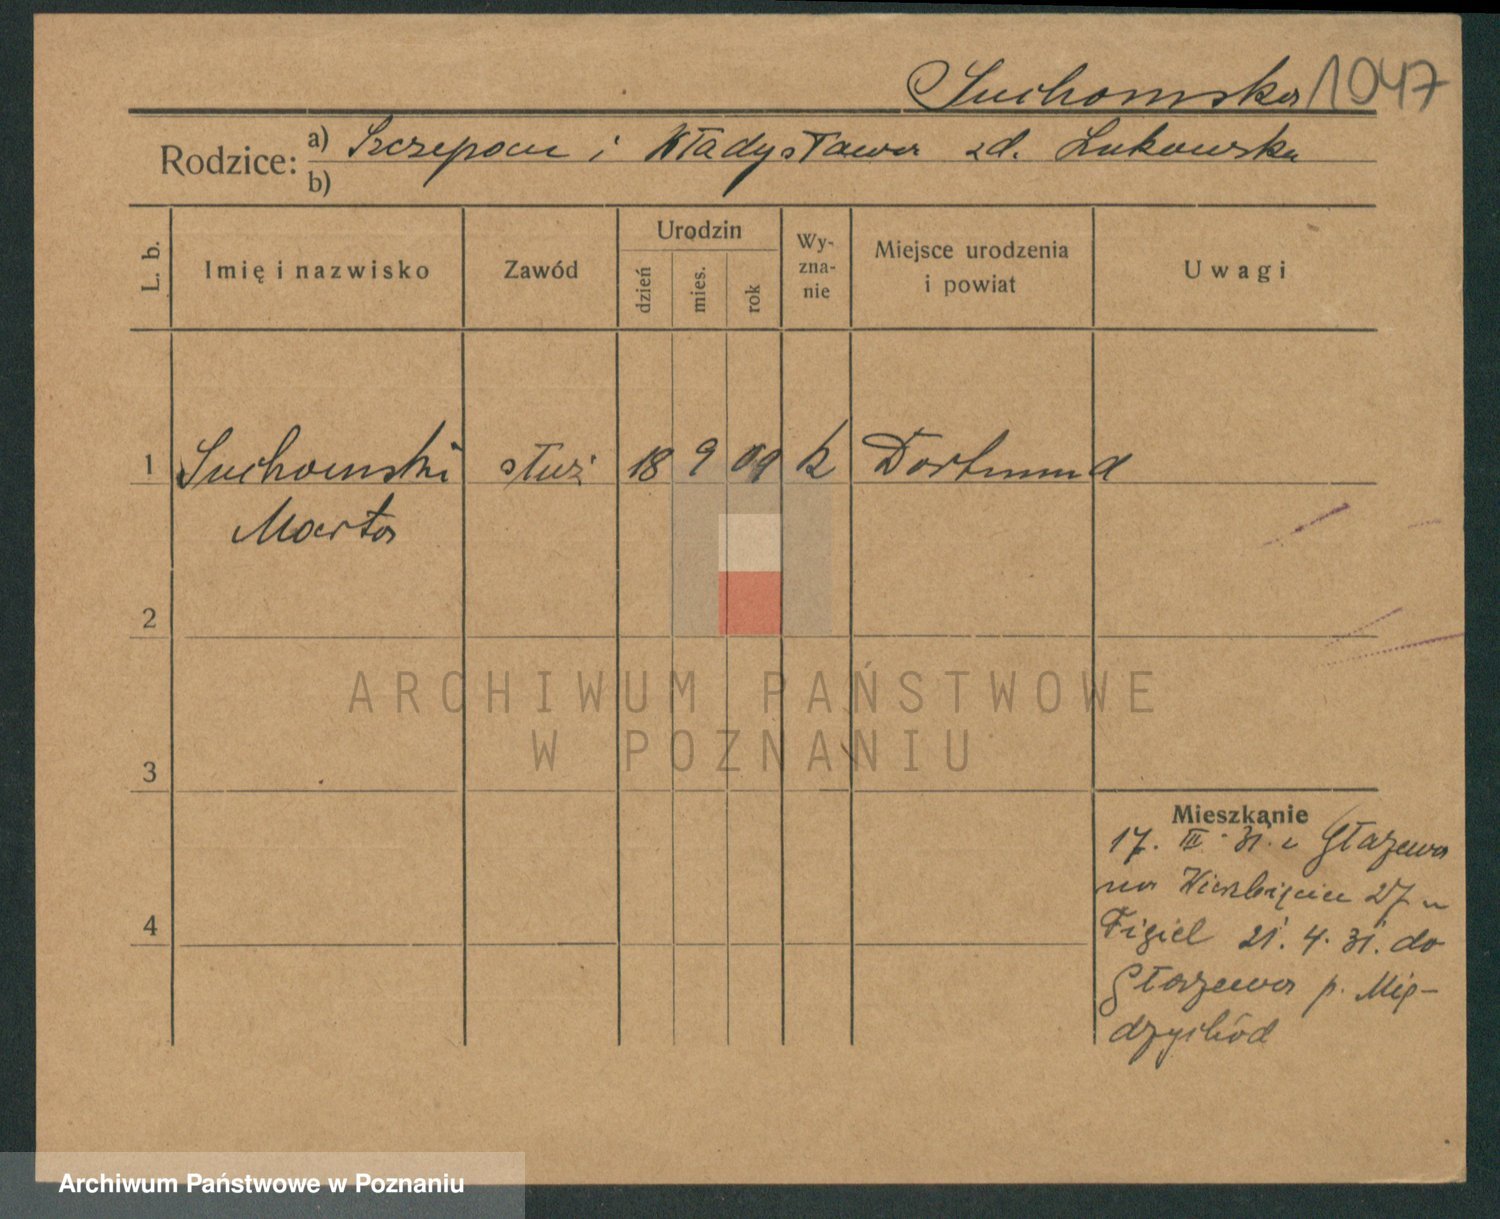 Suchomska 1047
Rodzice: a) Szczepan i Władysława zd. Lukowska
b)
L. b.
Imię i nazwisko
Zawód
Urodzin
dzień
mies.
rok
Wy-
zna-
nie
Miejsce urodzenia
i powiat
Uwagi
1 Suchomski służ 18 9 09 k Dortmund
Marta
2
ARCHIWUM PAŃSTWOWE
W POZNANIU
3
Mieszkanie
17. III. 31. z Głażewa
na Wierzbięcice 27 u
4
Figiel 21. 4. 31. do
Głażewa p. Mię-
dzychód
Archiwum Państwowe w Poznaniu